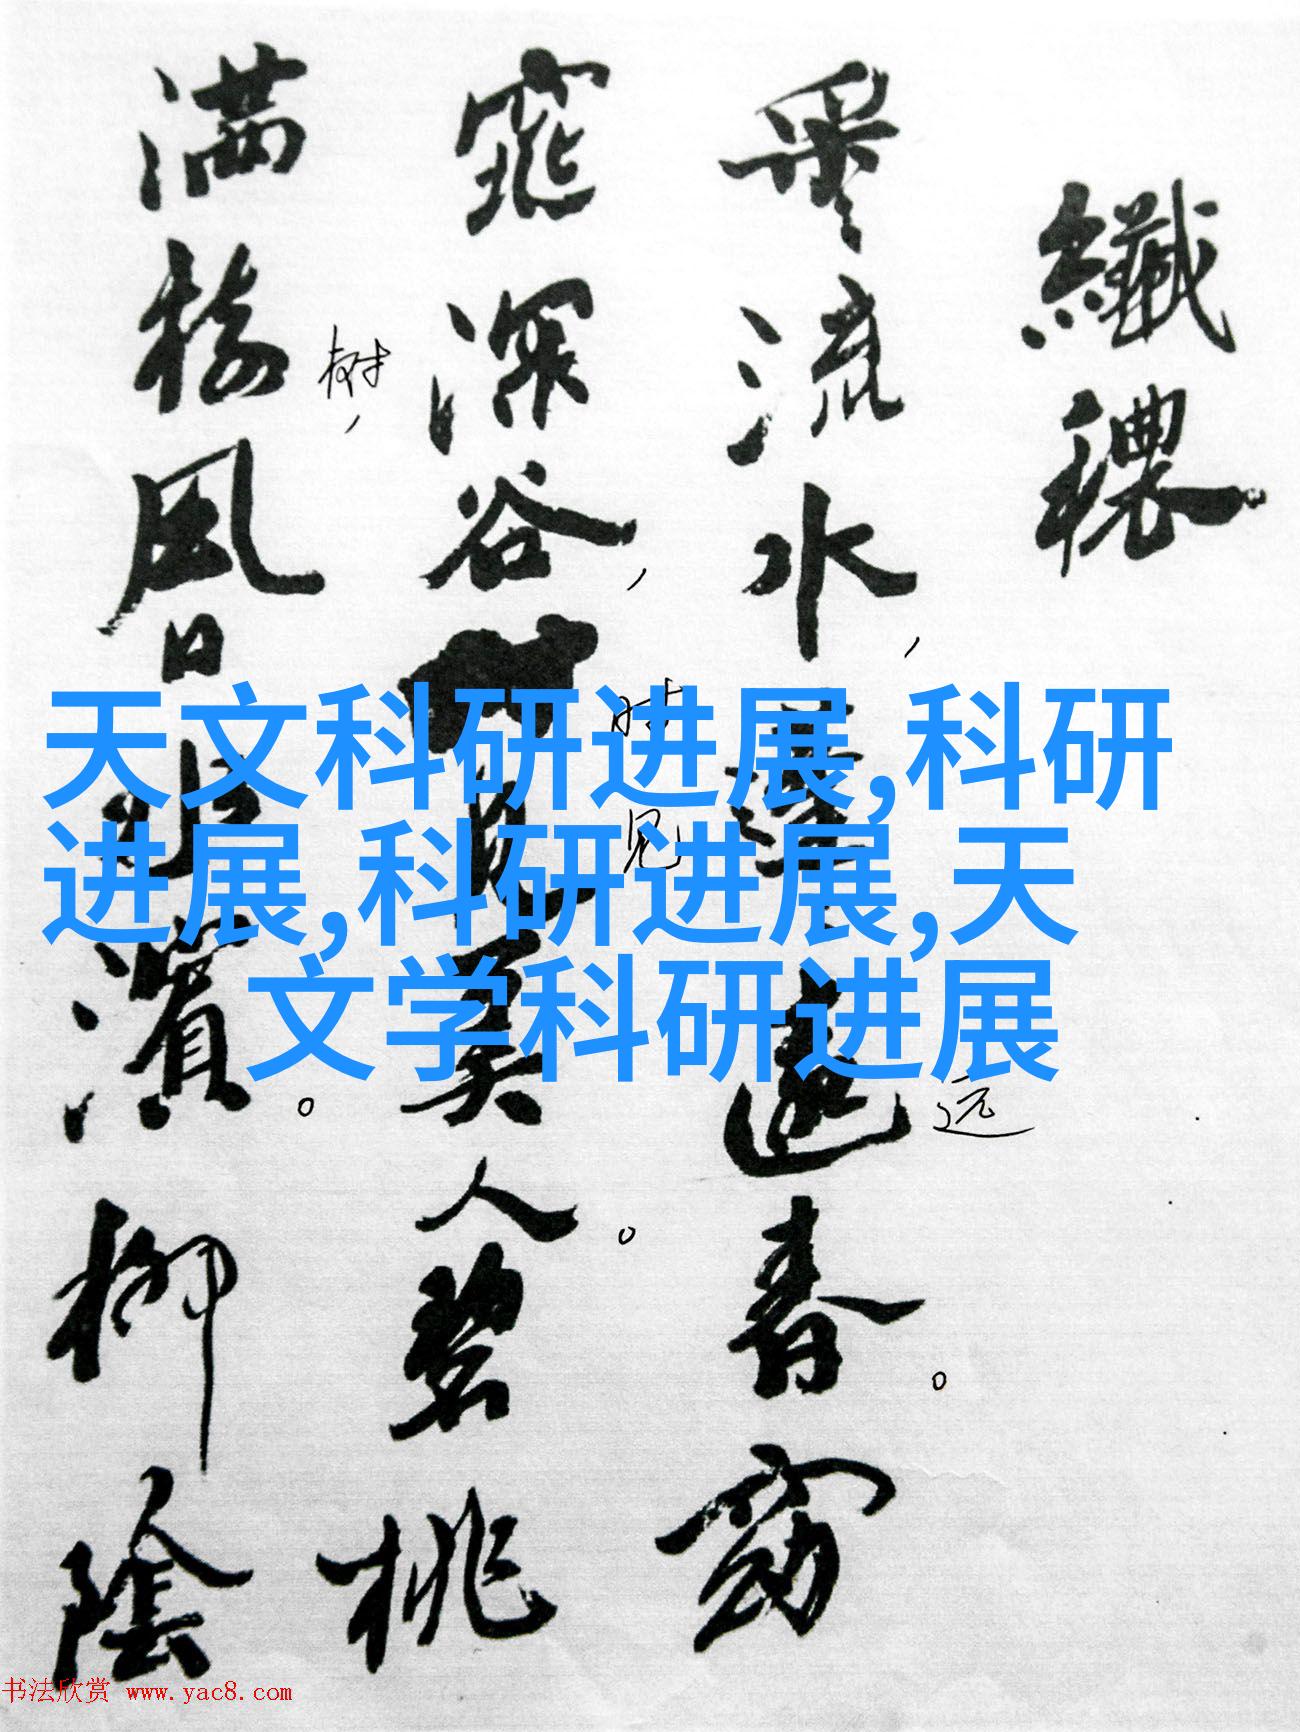 纖穠
采流水,蓬遠春。窈
窕深谷,見美人。碧桃
满樹,風日水濱。柳陰
树
时
见
远
天文科研进展,科研
进展,科研进展,天
文学科研进展
书法欣赏 www.yac8.com